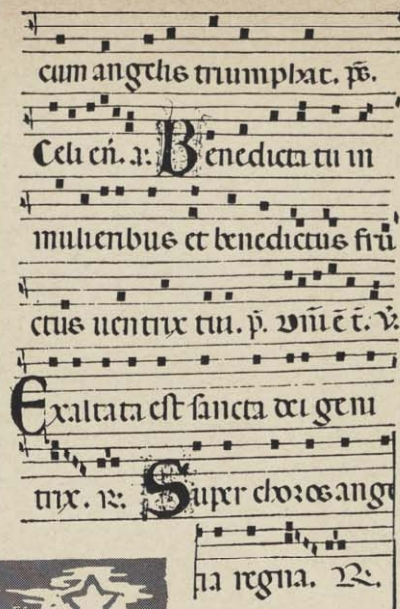 cum angelis triumphat. ps.
Celi en. a. Benedicta tu in
mulieribus et benedictus fru
ctus uentrix tui. p. Dni e t. V.
Exaltata est sancta dei geni
trix. R. Super choros ange
na regna. R.